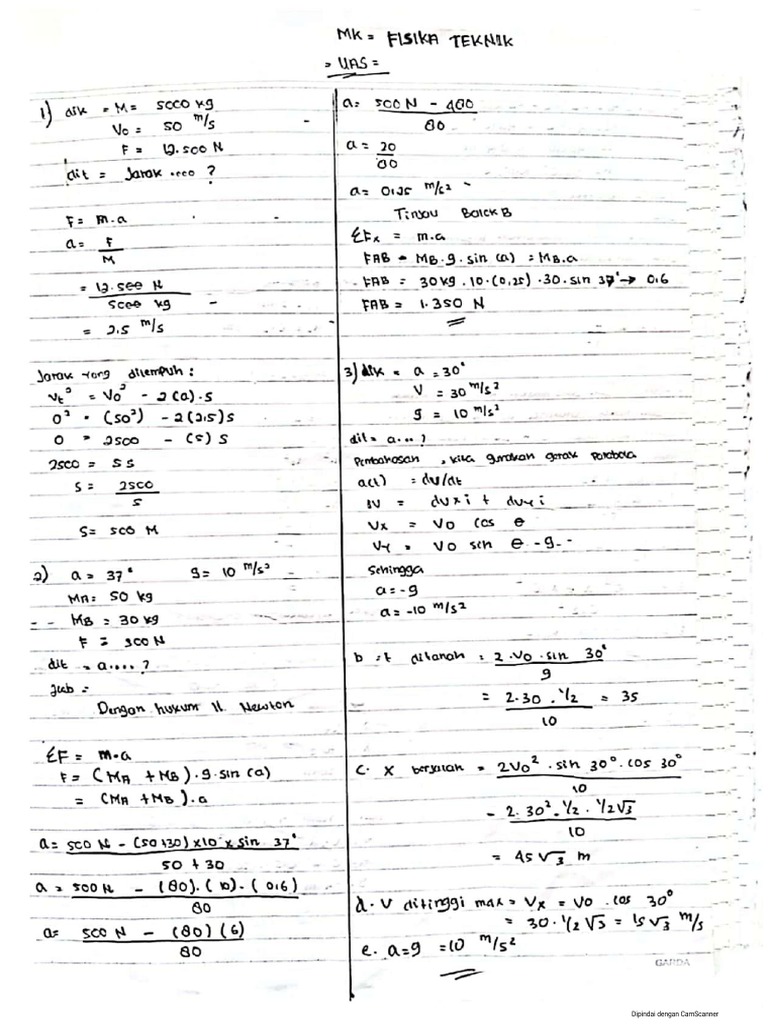 MK = FISIKA TEKNIK
= UAS =
1) dik = M = 5000 kg
Vo = 50 m/s
F = 12.500 N
dit = Jarak .... ?
F = m.a
a = F
M
= 12.500 N
5000 kg
= 2,5 m/s
Jarak yang ditempuh :
Vt² = Vo² - 2(a).s
0² = (50²) - 2(2,5)s
0 = 2500 - (5) S
2500 = 5S
S = 2500
5
S = 500 M
2) a = 37° g = 10 m/s²
MA = 50 kg
MB = 30 kg
F = 500 N
dit = a.... ?
Jwb =
Dengan hukum II Newton
ΣF = m.a
F = (MA + MB).g.sin (a)
= (MA + MB).a
a = 500 N - (50+30) x 10 x sin 37°
50 + 30
a = 500 N - (80).(10).(0,6)
80
a = 500 N - (80)(6)
80
a = 500 N - 480
80
a = 20
80
a = 0,25 m/s²
Tinjau Balck B
ΣFx = m.a
FAB - MB.g.sin (a) = MB.a
FAB = 30 kg.10.(0,25).30.sin 37° → 0.6
FAB = 1.350 N
3) dik = a = 30°
V = 30 m/s²
g = 10 m/s²
dit = a... ?
Pembahasan , kita gunakan gerak Parabola
a(t) = dv/dt
dv = dvxi + dvyi
Vx = Vo cos θ
Vy = Vo sin θ -g-
Sehingga
a = -g
a = -10 m/s²
b = t ditanah = 2.Vo.sin 30°
g
= 2.30.1/2 = 3s
10
c. X berjalan = 2Vo².sin 30°.cos 30°
10
= 2.30².1/2.1/2√3
10
= 45√3 m
d. V ditinggi max = Vx = Vo.cos 30°
= 30.1/2√3 = 15√3 m/s
e. a=g = 10 m/s²
GARDA
Dipindai dengan CamScanner